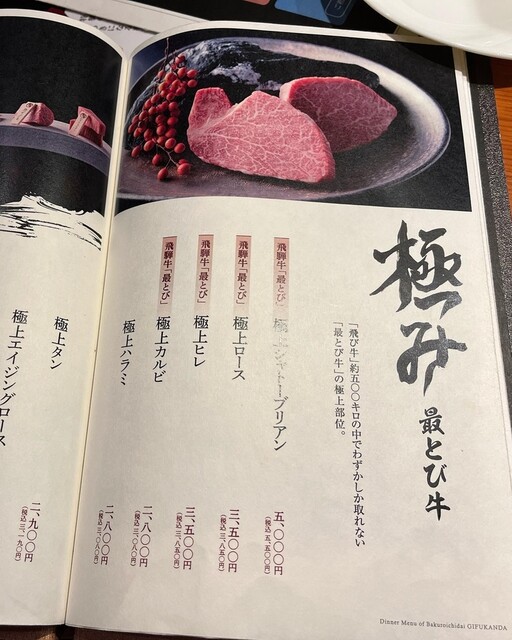 極み 最とび牛
「飛び牛」約五〇〇キロの中でわずかしか取れない
「最とび牛」の極上部位。
飛騨牛「最とび」 極上シャトーブリアン 五、〇〇〇円
(税込 五、五〇〇円)
飛騨牛「最とび」 極上ロース 三、五〇〇円
(税込 三、八五〇円)
飛騨牛「最とび」 極上ヒレ 三、五〇〇円
(税込 三、八五〇円)
飛騨牛「最とび」 極上カルビ 二、八〇〇円
(税込 三、〇八〇円)
極上ハラミ 二、八〇〇円
(税込 三、〇八〇円)
極上タン 二、九〇〇円
(税込 三、一九〇円)
極上エイジングロース
Dinner Menu of Bakuroichidai GIFUKANDA